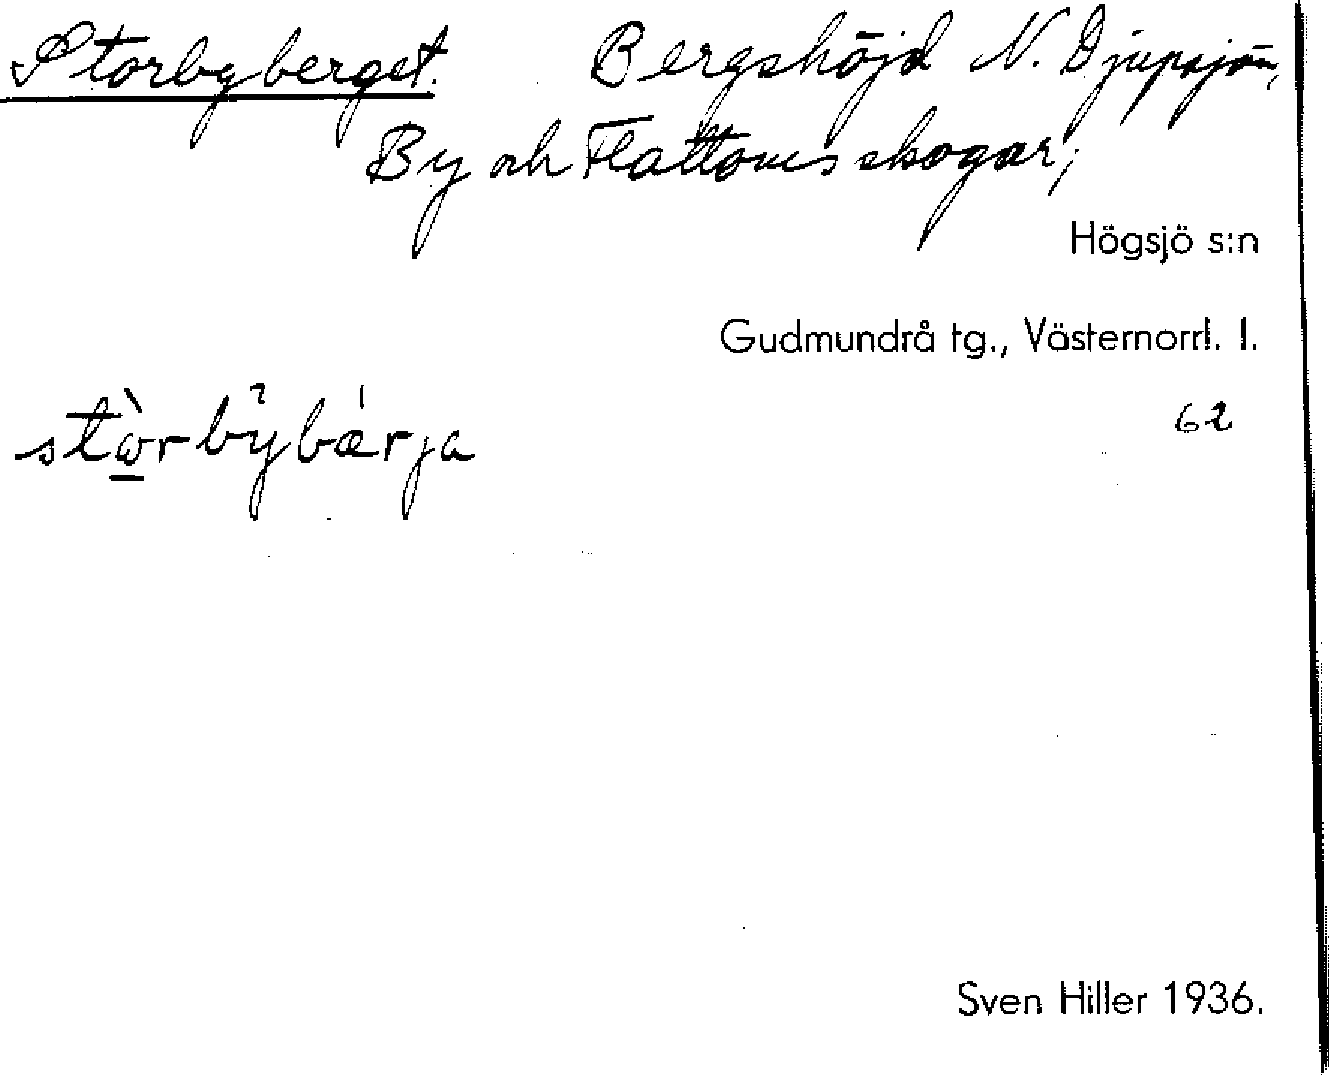 Storbyberget. Bergshöjd N. Djupsjön,
By och Flattoms skogar;
Högsjö s:n
Gudmundrå tg., Västernorrl. l.
62
stὼrby̌bærja
Sven Hiller 1936.